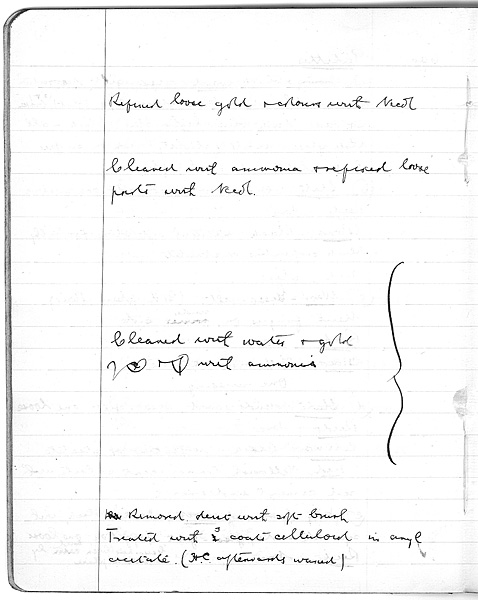 Refixed loose gold + colours with Necol
Cleaned with ammonia + refixed loose
parts with Necol.
Cleaned with water + gold
+ with ammonia
Removed dust with soft brush
Treated with 3 coats celluloid in amyl
acetate. (H.C. afterwards waxed)